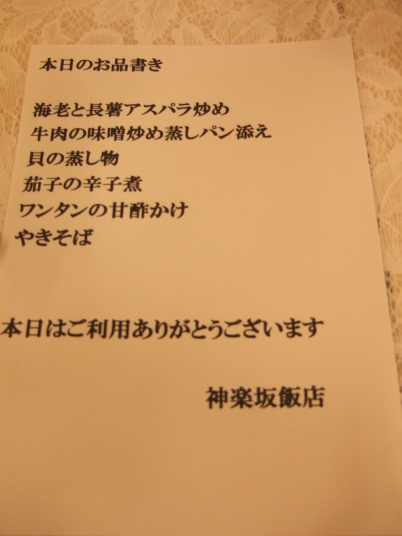 本日のお品書き
海老と長薯アスパラ炒め
牛肉の味噌炒め蒸しパン添え
貝の蒸し物
茄子の辛子煮
ワンタンの甘酢かけ
やきそば
本日はご利用ありがとうございます
神楽坂飯店